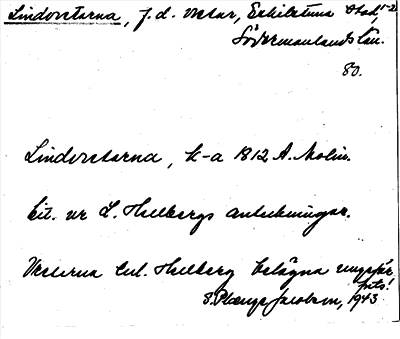 Lindvretarna, f.d. vretar, Eskilstuna stad, 1-2
Södermanlands län.
80.
Lindvretarna, k-a 1812 A. Molin.
cit. ur L. Hellbergs anteckningar.
Vretarna enl. Hellberg belägna ungefär
hits!
S. Plænge Jacobson, 1943